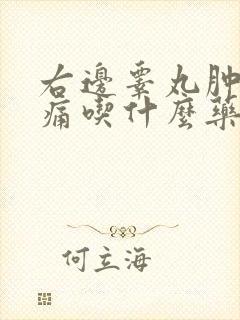 右邊睾丸肿
痛喫什麼藥
何立海